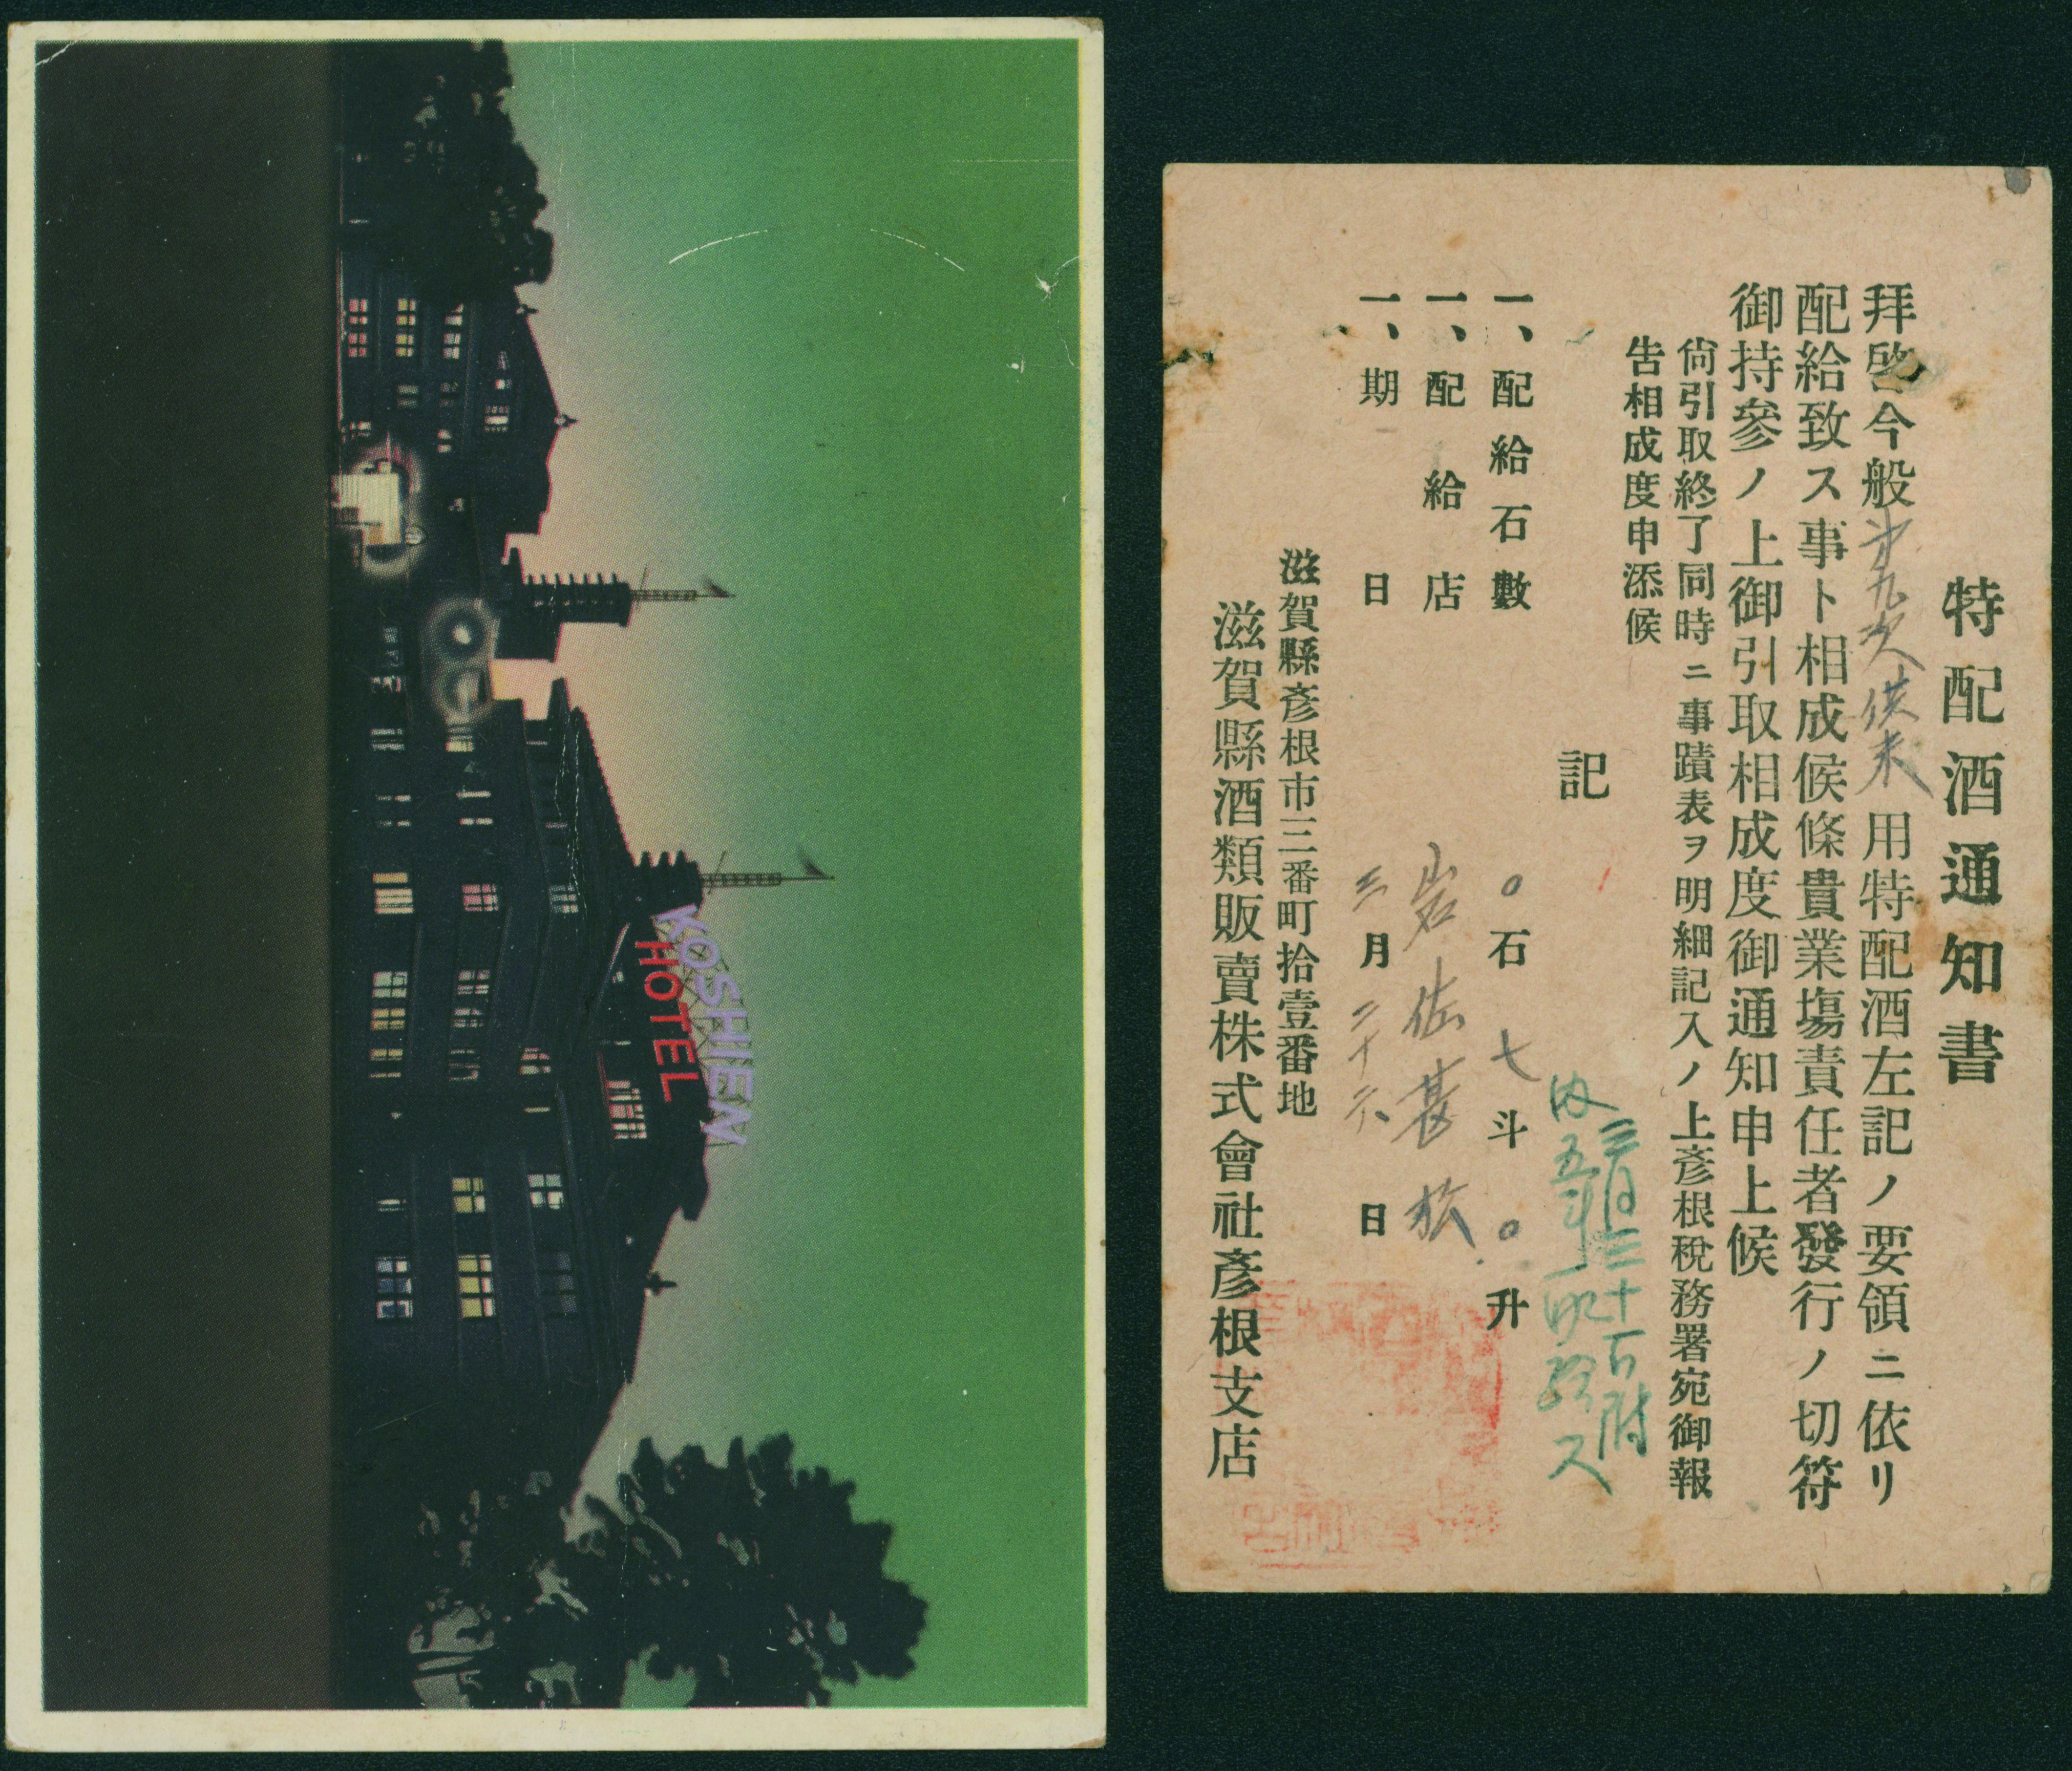 KOSHIEN
HOTEL
特配酒通知書
拜啓今般第九次供米用特配酒左記ノ要領ニ依リ
配給致ス事ト相成候條貴業場責任者發行ノ切符
御持參ノ上御引取相成度御通知申上候
尙引取終了同時ニ事蹟表ヲ明細記入ノ上彥根稅務署宛御報
吿相成度申添候
記
三月三十一日附
五斗
一、配給石數 〇石七斗〇升
一、配給店 岩佐甚
一、期日 三月二十六日
滋賀縣彥根市三番町拾壹番地
滋賀縣酒類販賣株式會社彥根支店